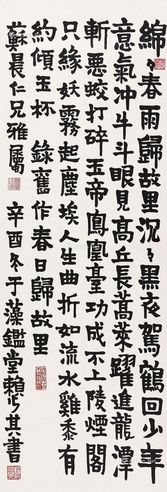 綿々春雨歸故里沉々黑夜駕鶴回少年
意氣冲牛斗眼見高丘長蒿萊躍進龍潭
斬惡蛟打碎玉帝鳳凰臺功成不上陵煙閣
只緣妖霧起塵埃人生曲折如流水雞黍有
約傾玉杯 錄舊作春日歸故里
蘇晨仁兄雅屬 辛酉冬于藻鑑堂賴少其書